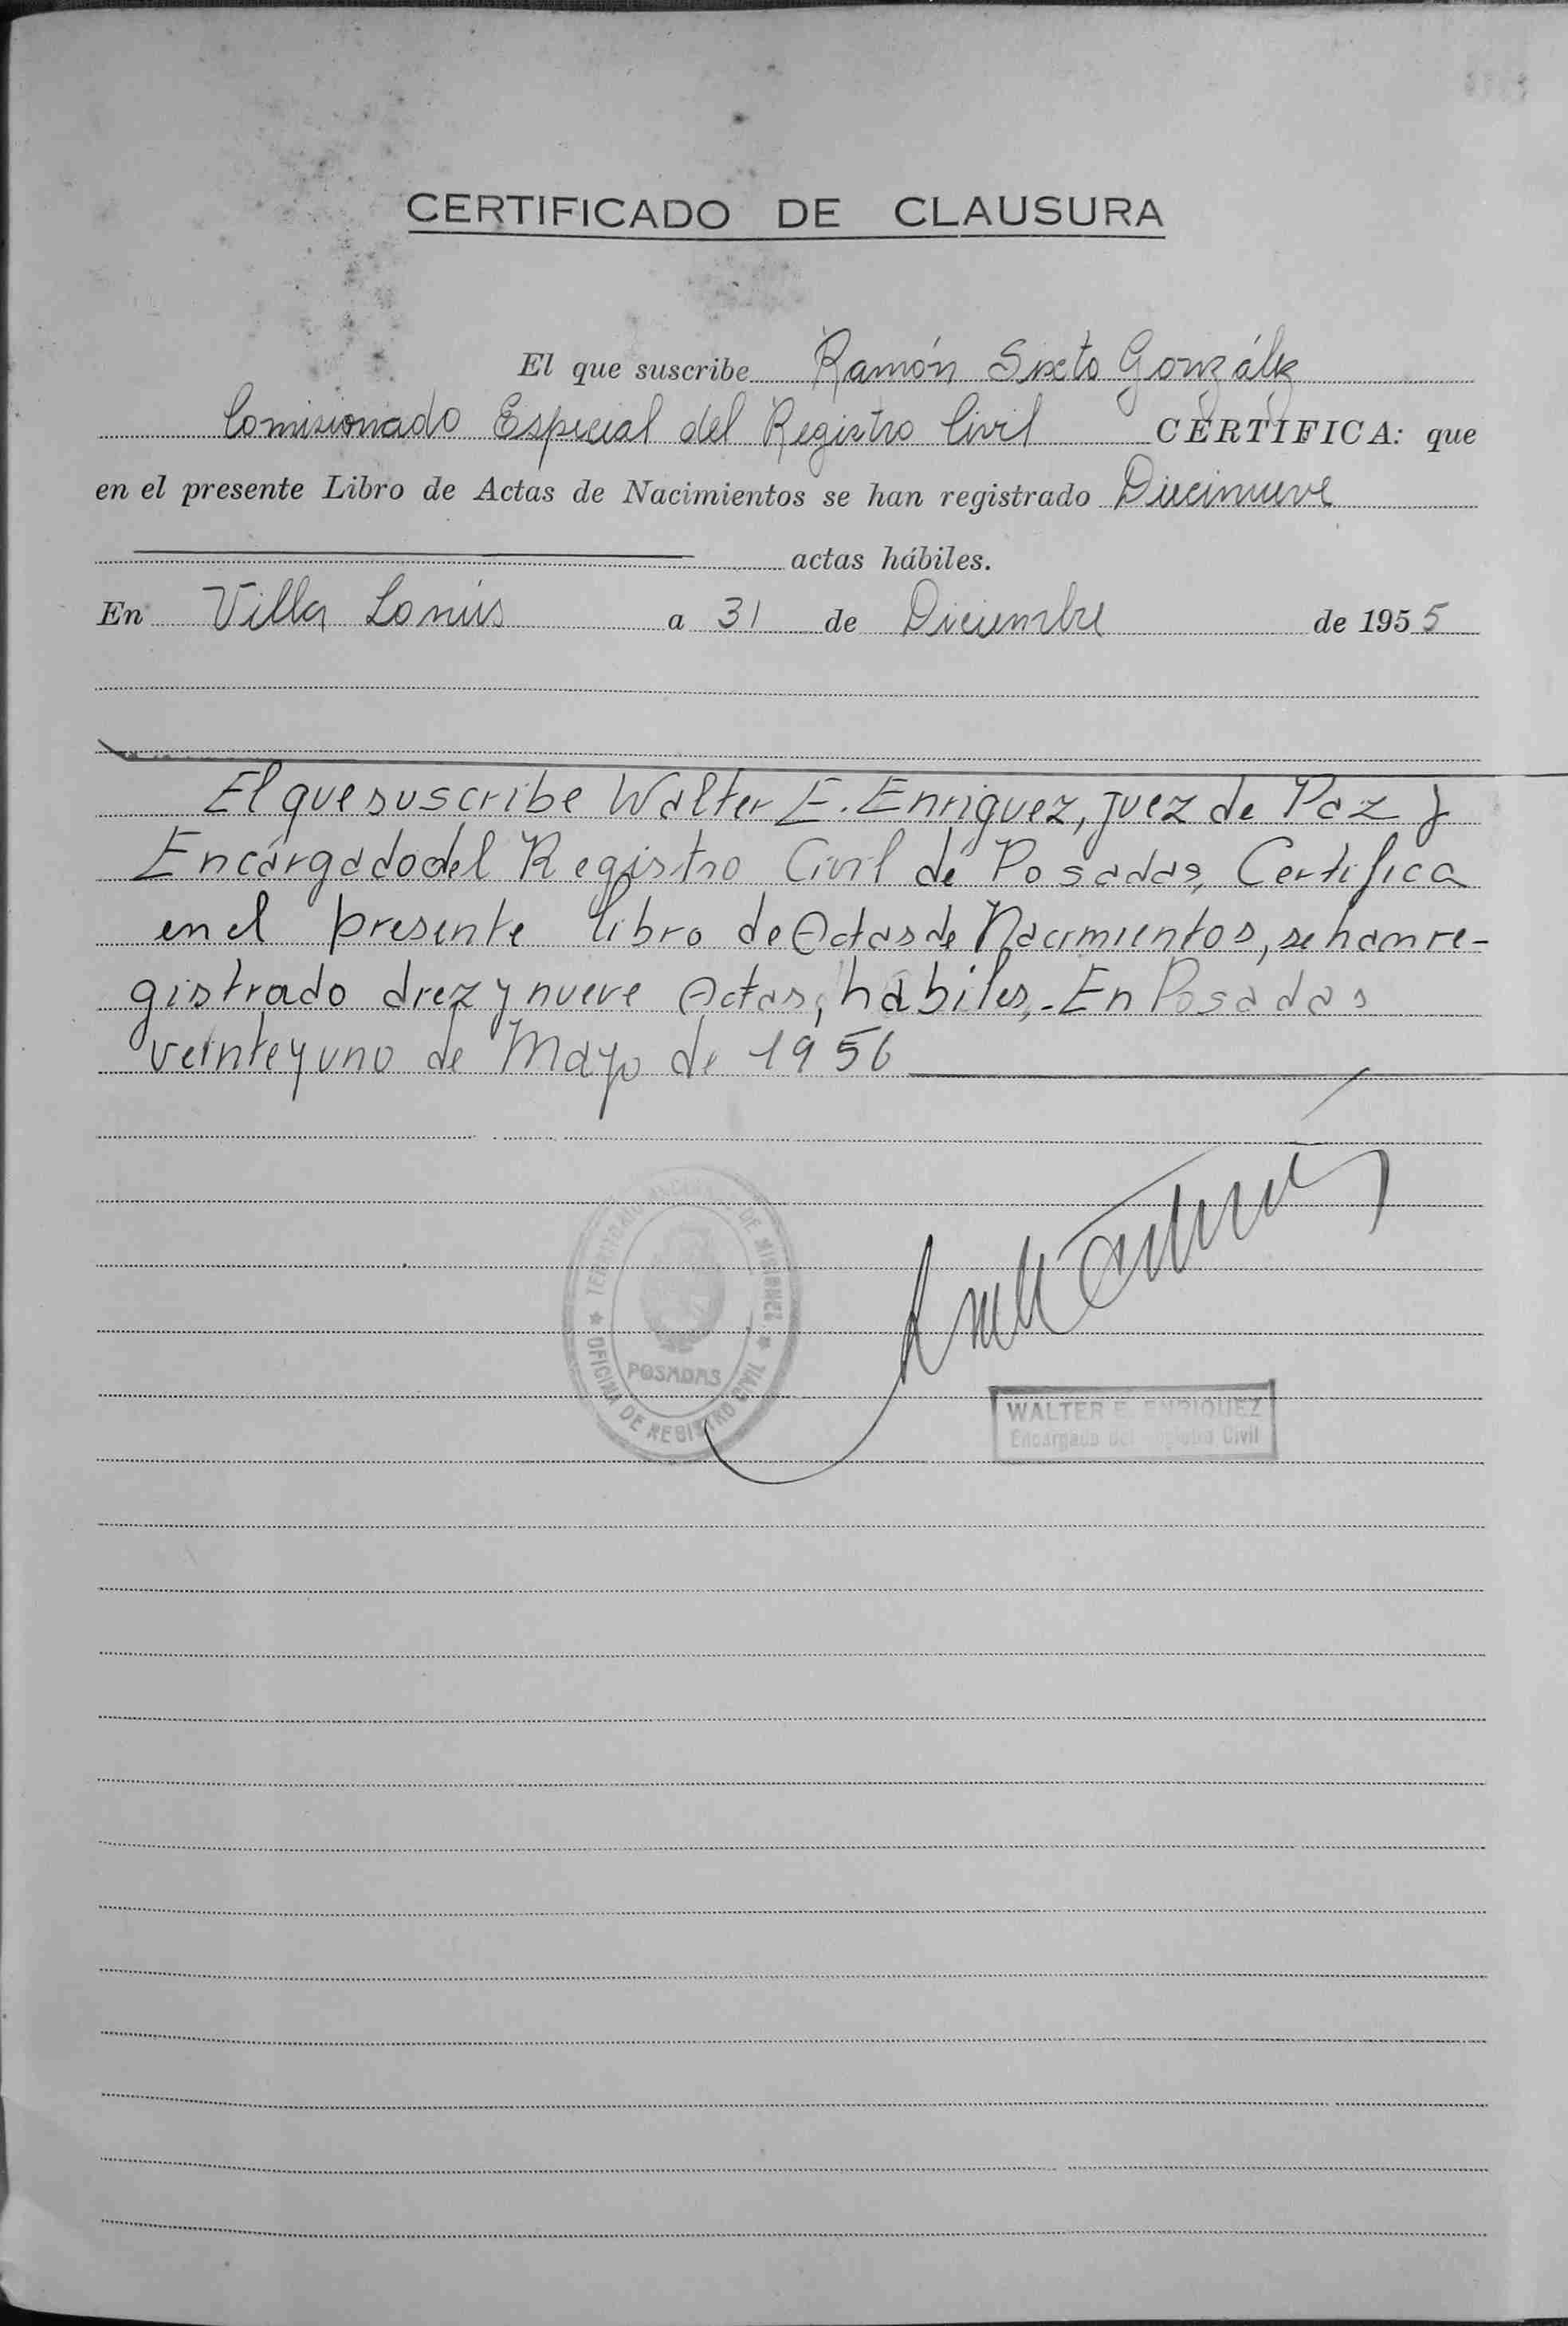 CERTIFICADO DE CLAUSURA
El que suscribe Ramón Sixto González
Comisionado Especial del Registro Civil CERTIFICA: que
en el presente Libro de Actas de Nacimientos se han registrado Diecinueve
actas hábiles.
En Villa Lanús a 31 de Diciembre de 1955
El que suscribe Walter E. Enriquez, juez de Paz y
Encargado del Registro Civil de Posadas, Certifica
en el presente libro de Actas de Nacimientos, se han re-
gistrado diez y nueve Actas, hábiles,- En Posadas
veinte y uno de Mayo de 1956
TERRITORIO DE MISIONES
POSADAS
OFICINA DE REGISTRO CIVIL
WALTER E. ENRIQUEZ
Encargado del Registro Civil